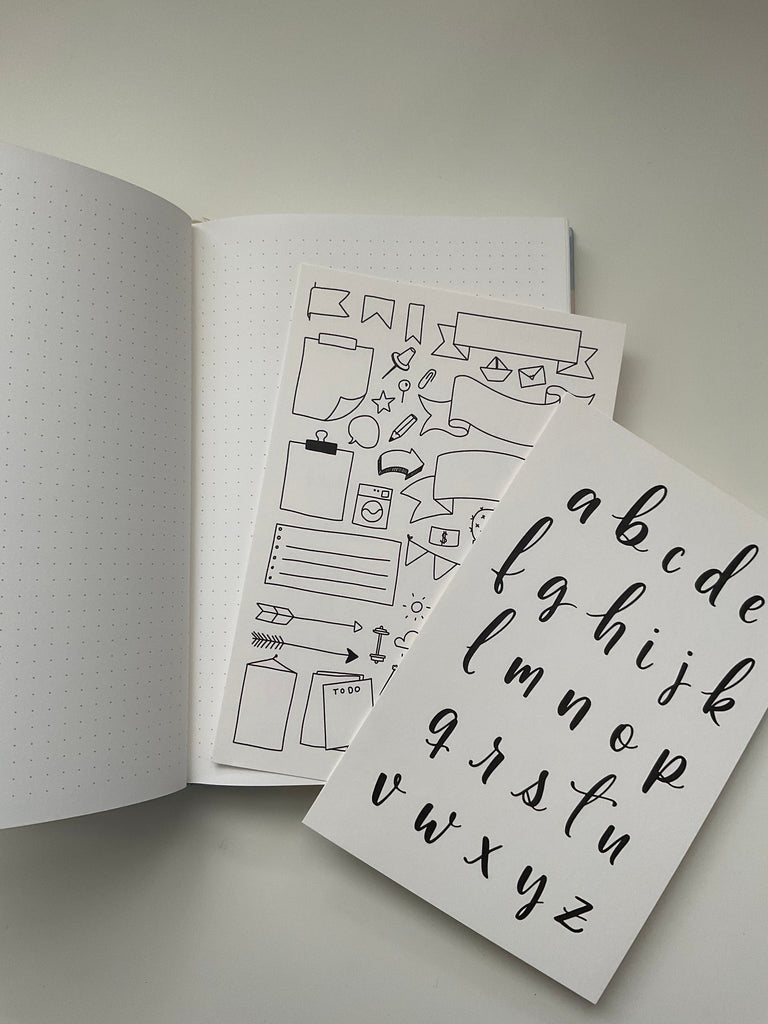 $
TO DO
a b c d e
f g h i j k
l m n o p
q r s t u
v w x y z